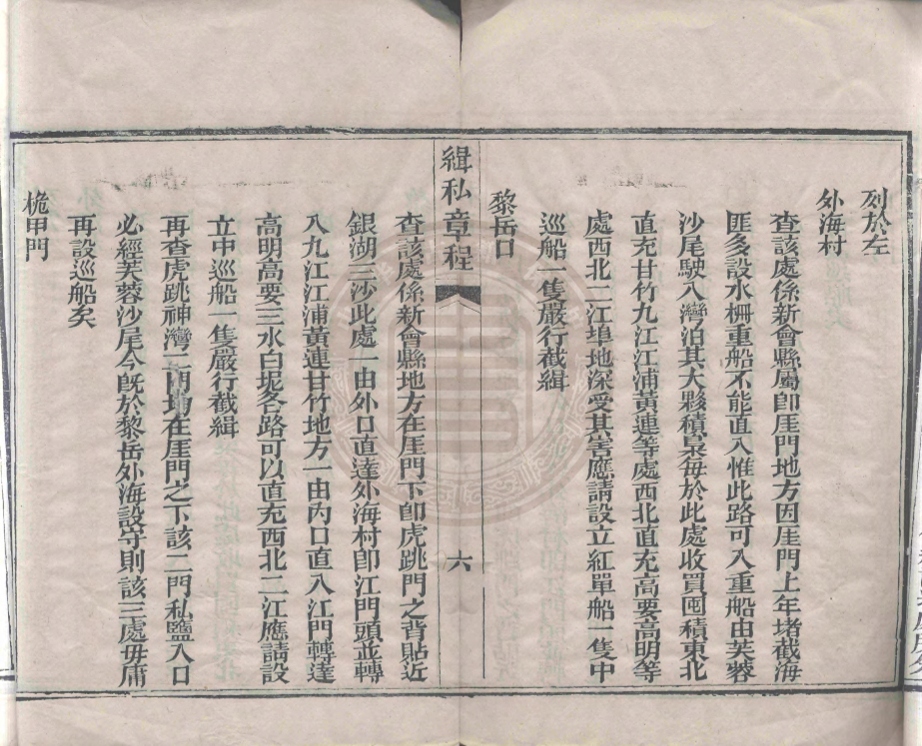 列於左
外海村
查該處係新會縣屬卽厓門地方因厓門上年堵截海
匪多設水柵重船不能直入惟此路可入重船由芙蓉
沙尾駛入灣泊其大夥積梟每於此處收買囤積東北
直充甘竹九江江浦黃連等處西北直充高要高明等
處西北二江埠地深受其害應請設立紅單船一隻中
巡船一隻嚴行截緝
黎岳口
緝私章程
六
查該處係新會縣地方在厓門下卽虎跳門之背貼近
銀湖三沙此處一由外口直達外海村卽江門頭並轉
入九江江浦黃連甘竹地方一由內口直入江門轉達
高明高要三水白坭各路可以直充西北二江應請設
立中巡船一隻嚴行截緝
再查虎跳神灣二門均在厓門之下該二門私鹽入口
必經芙蓉沙尾今旣於黎岳外海設守則該三處毋庸
再設巡船矣
桅甲門